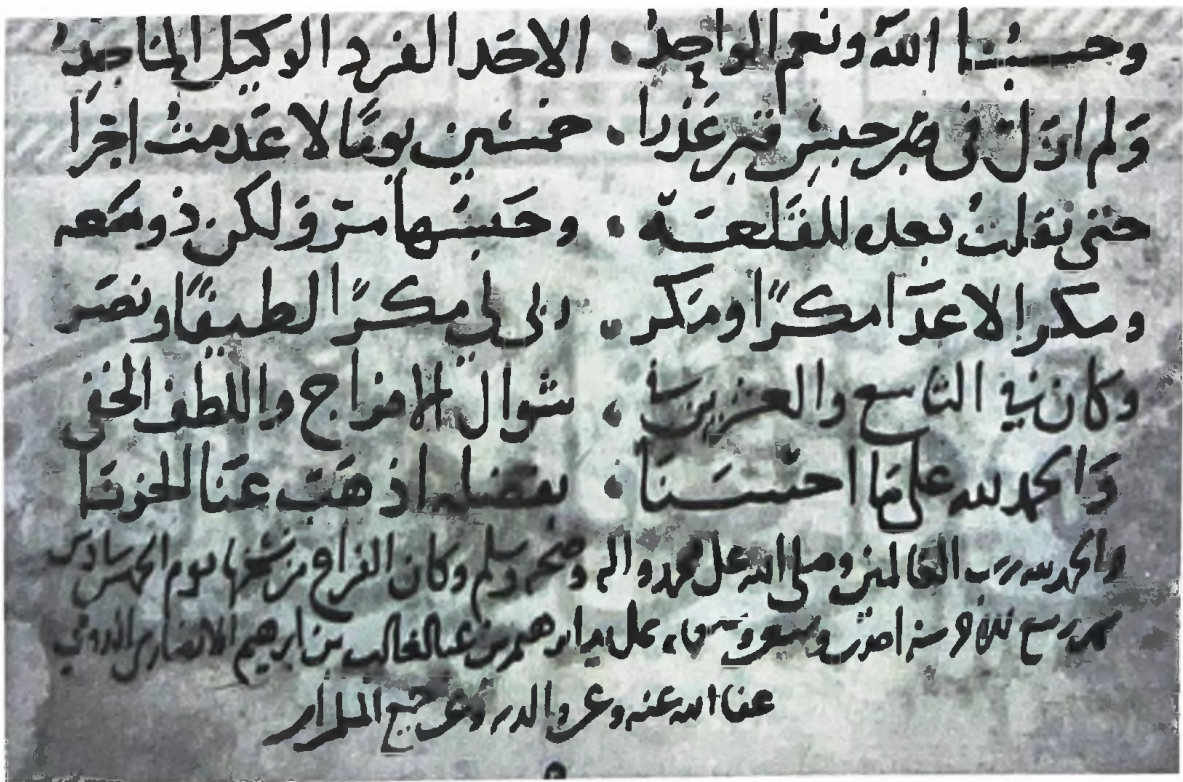 وحسبنا الله ونعم الواحد . الاحد الفرد الوكيل الماجد
ولم ازل في قصر حبس قصر عذرا . خمسين يومًا لا عدمت اجرا
حتى نقلت بعد للقلعة . وحبسها مرّ ولكن ذو سعه
ومكرا الاعدا مكرًا ومكر . ربي لي مكرًا لطيفًا ونصر
وكان في التاسع والعشرين . شوال الافراج واللطف الخفي
والحمد لله على ما احسنا . بفضله اذهب عنا الحزنا
والحمد لله رب العالمين وصلى الله على محمد واله وصحبه وسلم وكان الفراغ من نسخها يوم الخميس سادس
شهر ربيع الاخر سنة احدى وسبعين على يد ابرهيم بن عبد الغالب بن ابرهيم الانصاري
عفا الله عنه وعن والديه وعن جميع